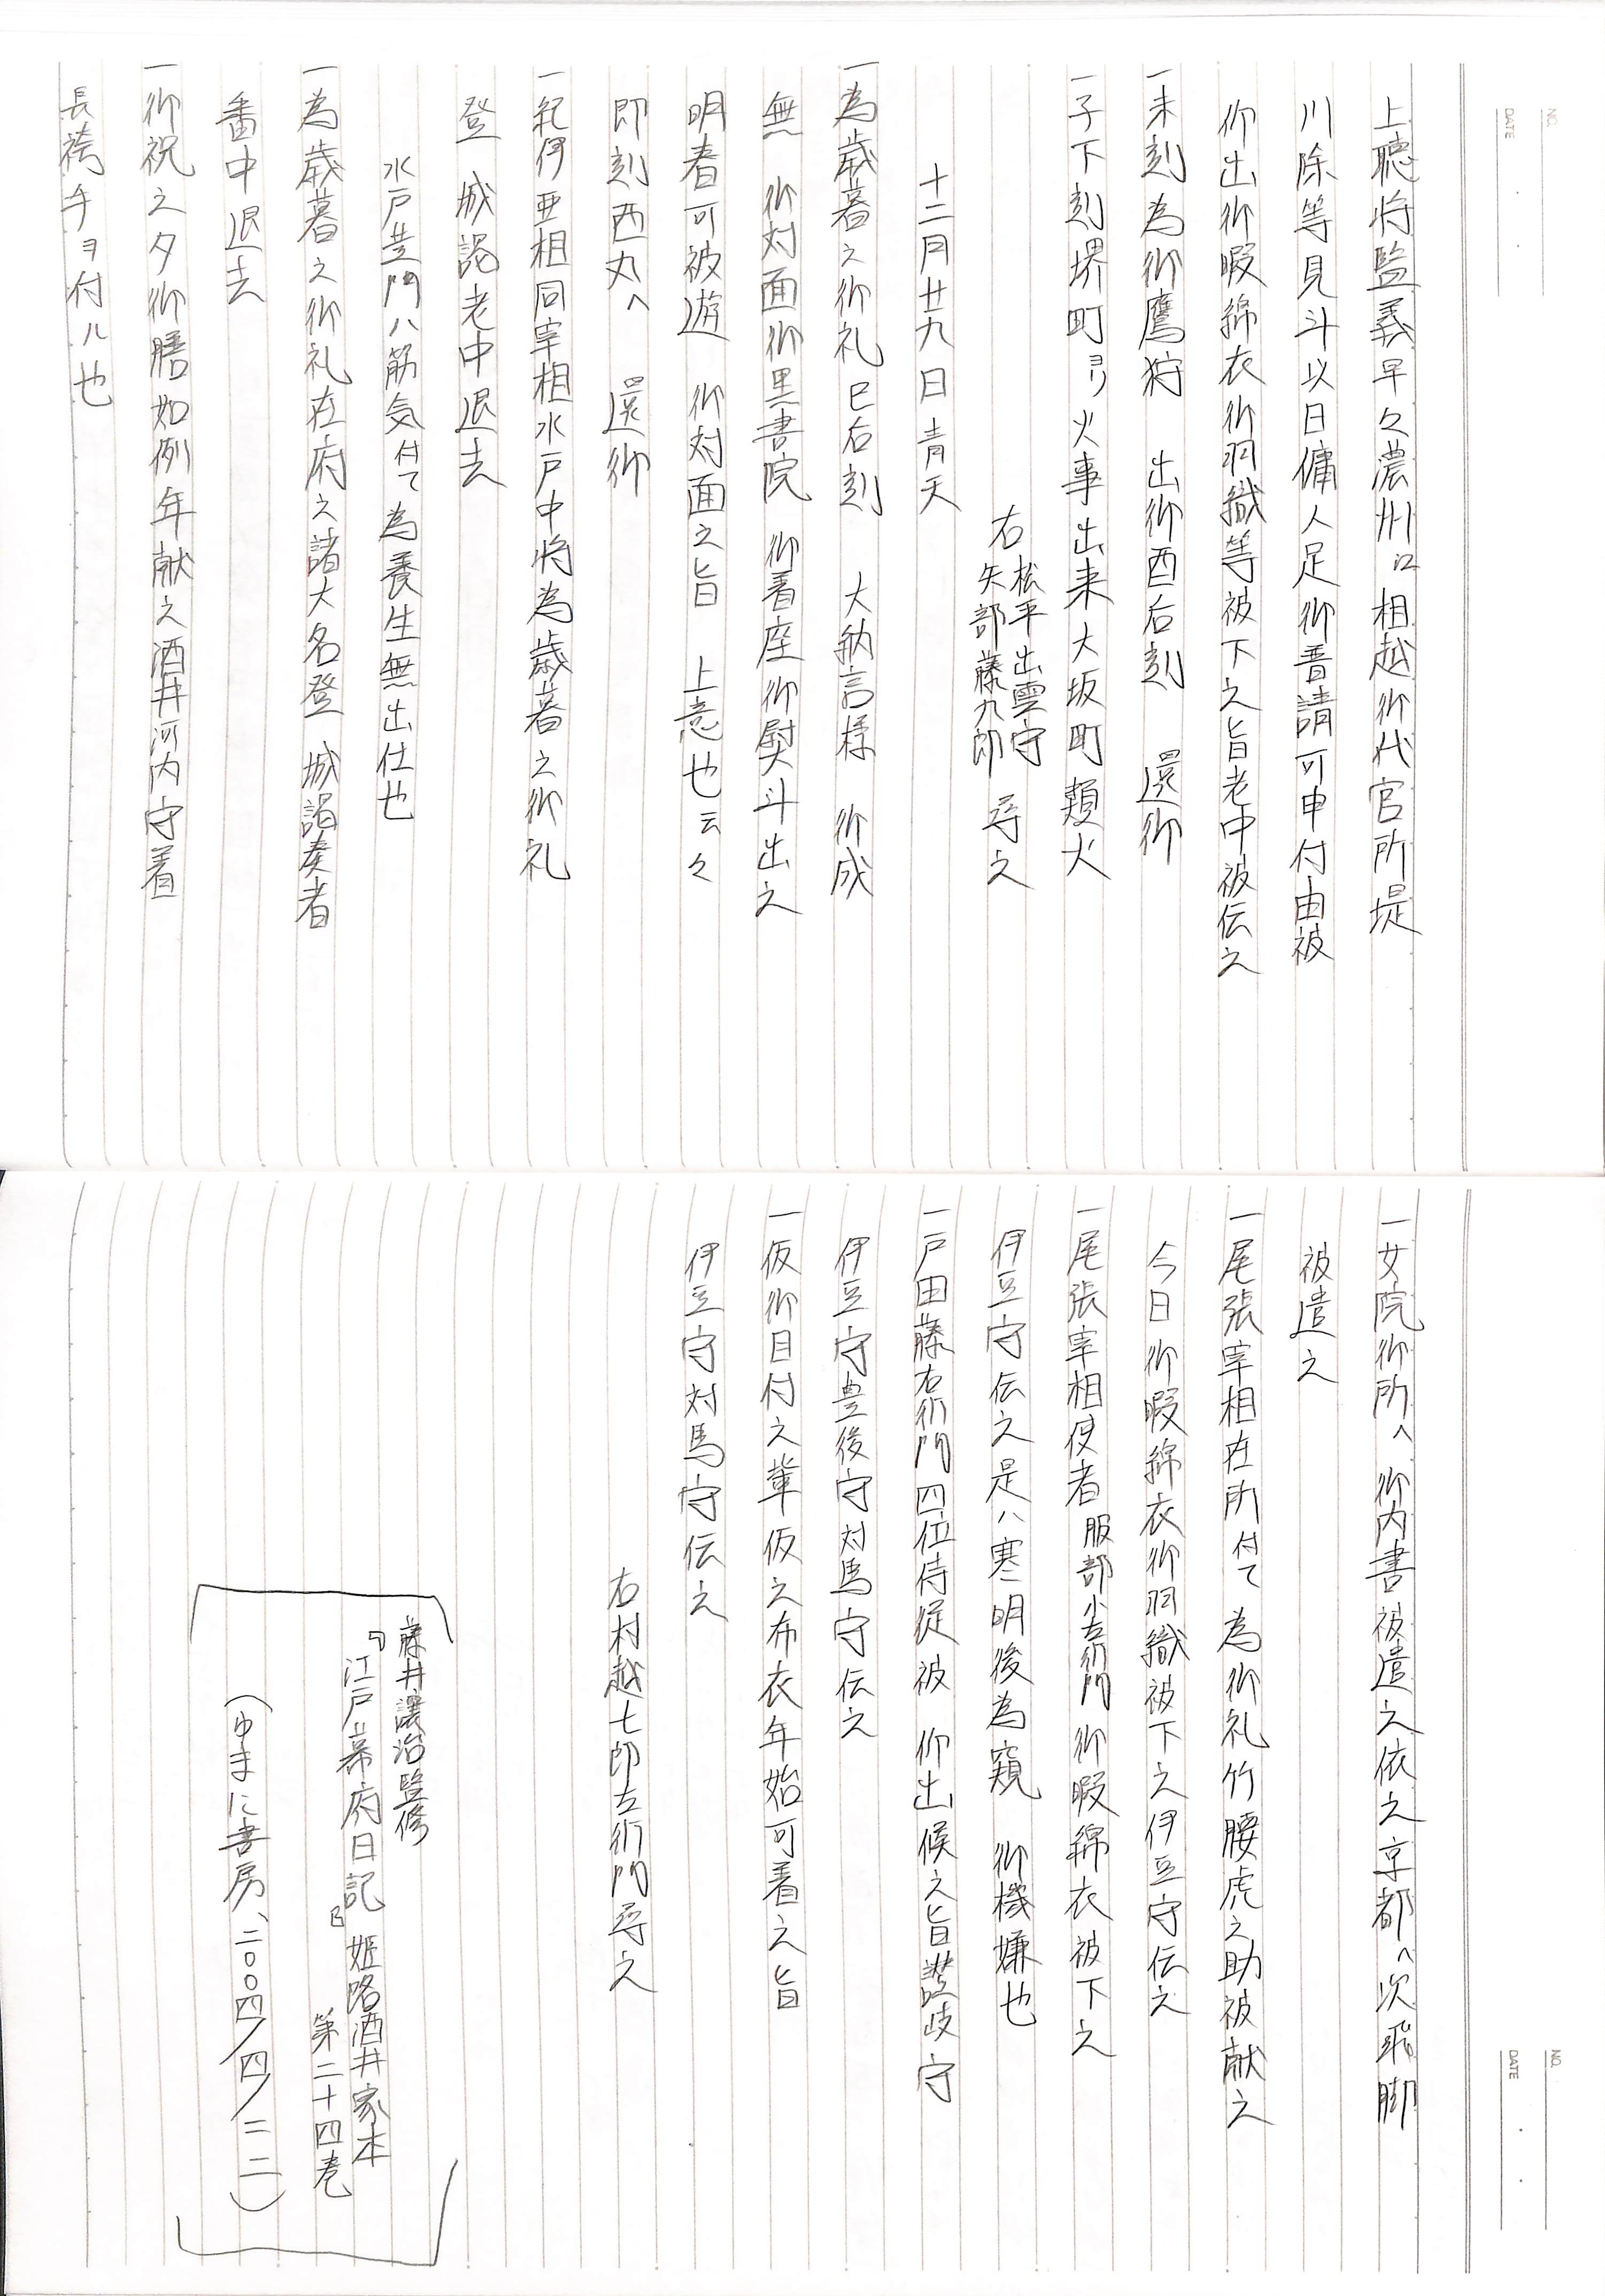 NO.
DATE
上聴将監義早々濃州江相越御代官所堤
川除等見斗以日傭人足御普請可申付由被
仰出御暇綿衣御羽織等被下之旨老中被伝之
一未刻為御鷹狩 出御酉后刻 還御
一子下刻堺町ヨリ火事出来大坂町類火
右松平出雲守
矢部藤九郎 尋之
十二月廿九日青天
一為歳暮之御礼巳后刻 大納言様 御成
無 御対面御黒書院 御着座御熨斗出之
明春可被遊 御対面之旨 上意也云々
即刻西丸ヘ 還御
一紀伊亜相同宰相水戸中将為歳暮之御礼
登 城謁老中退去
水戸黄門ハ筋気付て為養生無出仕也
一為歳暮之御礼在府之諸大名登 城謁奏者
番中退去
一御祝之夕御膳如例年献之酒井河内守着
長袴手ヲ付ル也
NO.
DATE
一女院御所ヘ御内書被遣之依之京都ヘ次飛脚
被遣之
一尾張宰相在所付て為御礼竹腰虎之助被献之
今日御暇綿衣御羽織被下之伊豆守伝之
一尾張宰相使者服部小左衛門御暇綿衣被下之
伊豆守伝之是ハ寒明後為窺 御機嫌也
一戸田藤右衛門四位侍従被 仰出候之旨讃岐守
伊豆守豊後守対馬守伝之
一仮御目付之輩仮之布衣年始可着之旨
伊豆守対馬守伝之
右村越七郎左衛門尋之
藤井讓治監修
『江戸幕府日記 姫路酒井家本』
第二十四巻
(ゆまに書房、二〇〇四/四/二二)